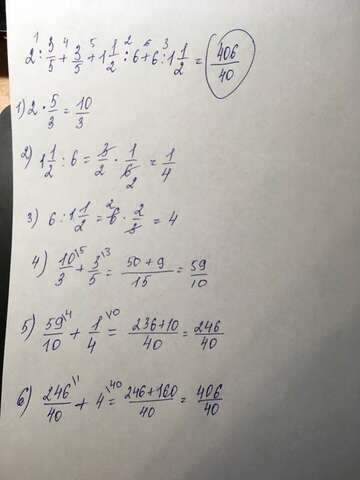 2 : 3/5 + 3/5 + 1 1/2 : 6 + 6 : 1 1/2 = 406/40
1) 2 · 5/3 = 10/3
2) 1 1/2 : 6 = 3/2 · 1/6 2 = 1/4
3) 6 : 1 1/2 = 6 2 · 2/3 = 4
4) 10/3 \5 + 3/5 \3 = 50+9/15 = 59/10
5) 59/10 \4 + 1/4 \10 = 236+10/40 = 246/40
6) 246/40 \1 + 4 \40 = 246+160/40 = 406/40